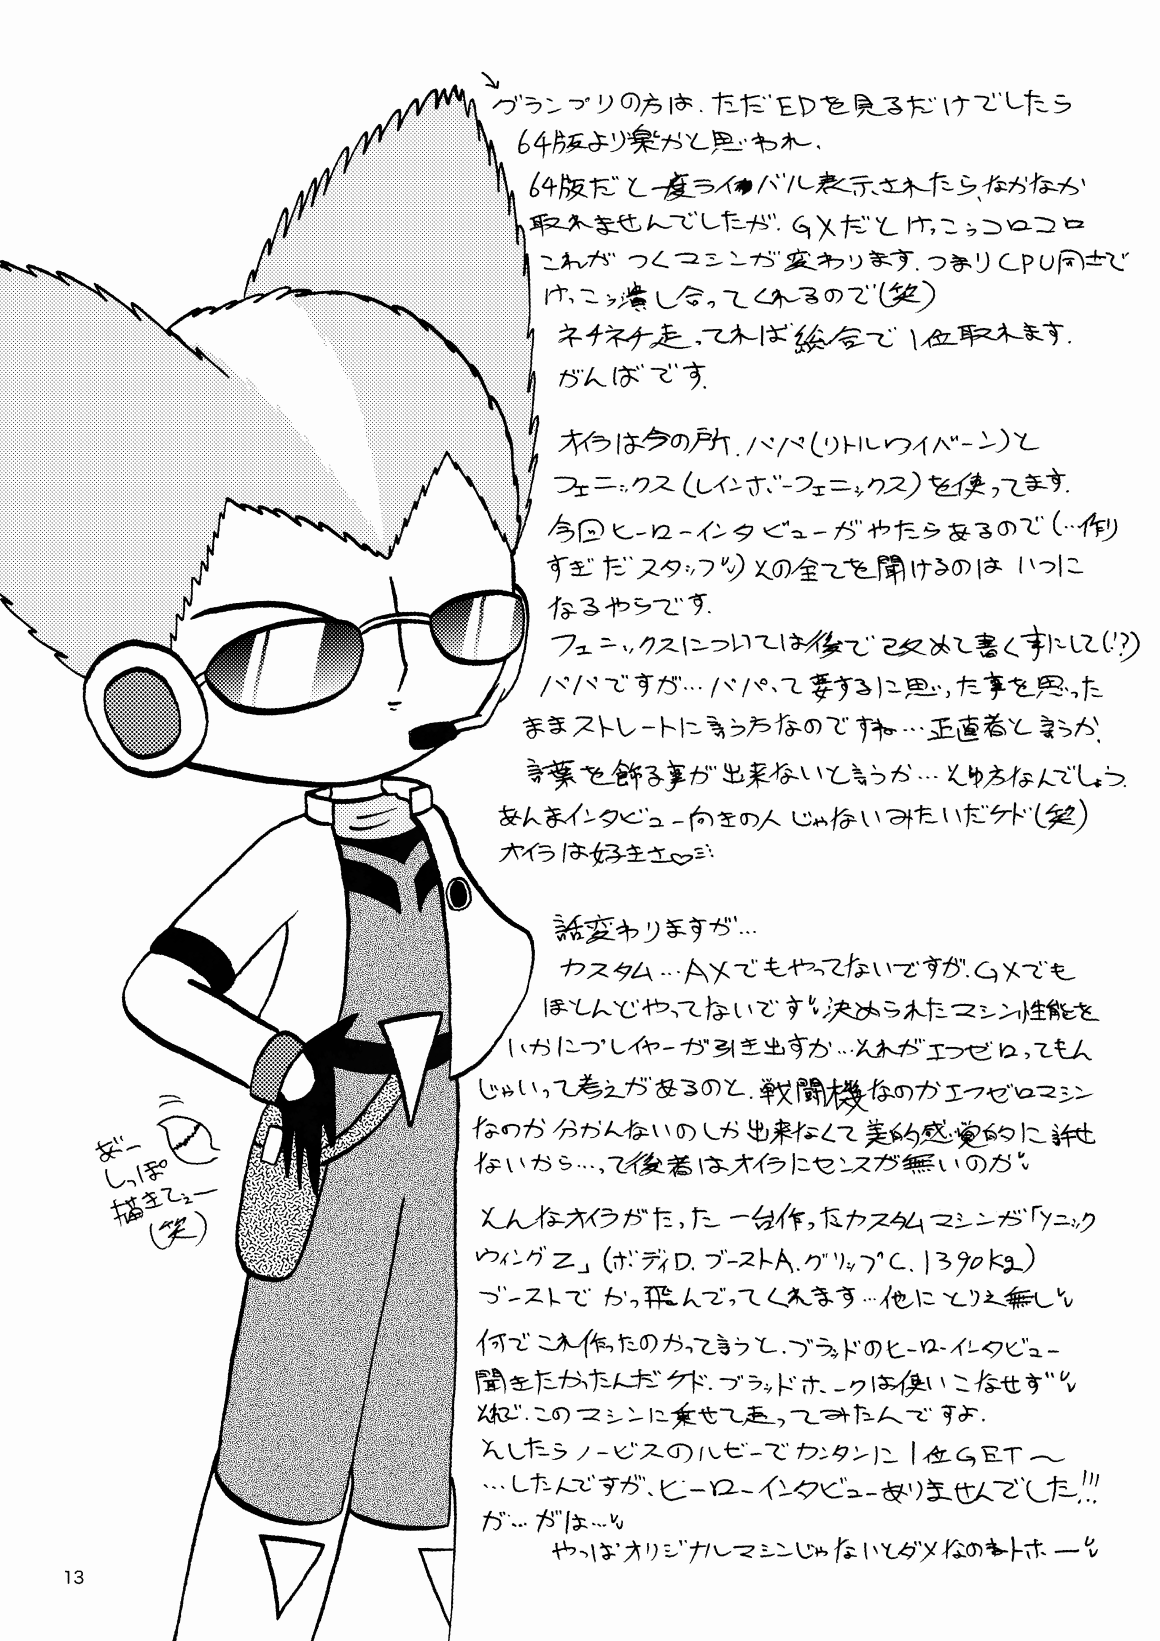 グランプリの方は、ただEDを見るだけでしたら
64版より楽かと思われ、
64版だと一度ライバル表示されたら、なかなか
取れませんでしたが、GXだとけっこうコロコロ
これがつくマシンが変わります。つまりCPU同士で
けっこう潰し合ってくれるので(笑)
ネチネチ走ってれば総合で1位取れます。
がんばです。
オイラは今の所、パパ(リトルワイバーン)と
フェニックス(レインボーフェニックス)を使ってます。
今回ヒーローインタビューがやたらあるので(…作り
すぎだスタッフ)その全てを聞けるのはいつに
なるやらです。
フェニックスについては後で改めて書く事にして(!?)
パパですが…パパって要するに思った事を思った
ままストレートに言う方なのですね…正直者と言うか、
言葉を飾る事が出来ないと言うか…そゆ方なんでしょう。
あんまインタビュー向きの人じゃないみたいだケド(笑)
オイラは好きさ♡
話変わりますが…
カスタム…AXでもやってないですが、GXでも
ほとんどやってないです 決められたマシン性能を
いかにプレイヤーが引き出すか…それがエフゼロってもん
じゃいって考えがあるのと、戦闘機なのかエフゼロマシン
なのか分かんないのしか出来なくて美的感覚的に許せ
ないから…って後者はオイラにセンスが無いのか
そんなオイラがたった一台作ったカスタムマシンが「ソニック
ウィングZ」(ボディD、ブーストA、グリップC、1390kg)
ブーストでかっ飛んでってくれます…他にとりえ無し
何でこれ作ったのかって言うと、ブラッドのヒーローインタビュー
聞きたかったんだケド、ブラッドホークは使いこなせず
それで、このマシンに乗せて走ってみたんですよ。
そしたらノービスのルビーでカンタンに1位GET〜
…したんですが、ヒーローインタビューありませんでした!!!
が…がは…
やっぱオリジナルマシンじゃないとダメなのネトホー
あー
しっぽ
描きてェー
(笑)
13